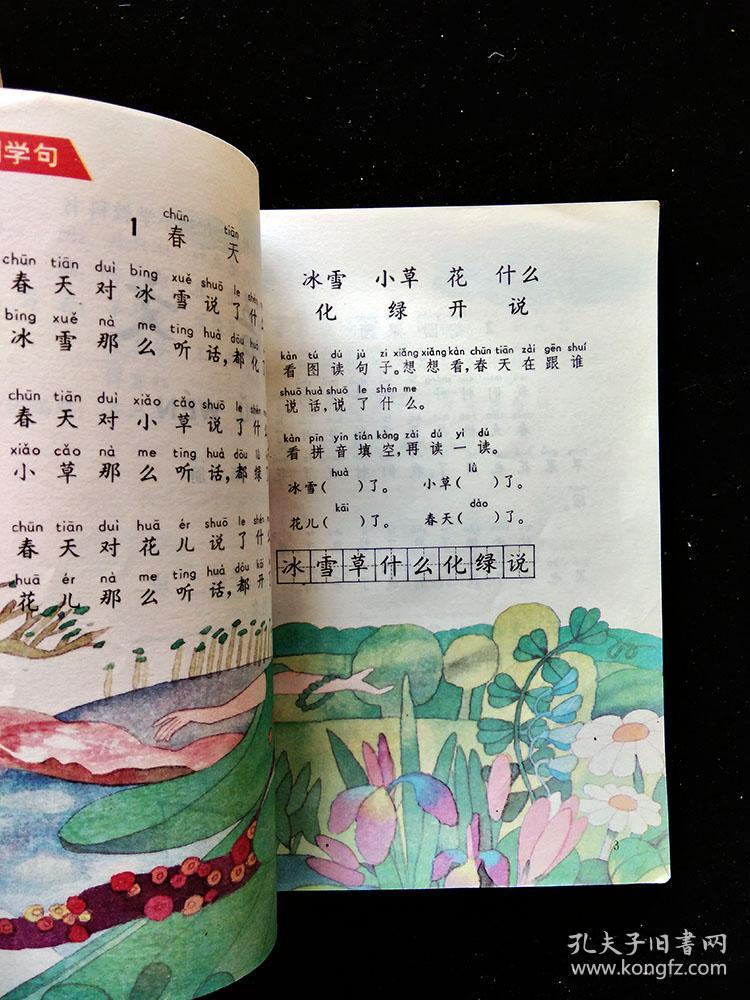 学句
chūn tiān
1 春 天
chūn tiān duì bīng xuě shuō le shén
春天对冰雪说了什
bīng xuě nà me tīng huà dōu huà
冰雪那么听话,都化了
chūn tiān duì xiǎo cǎo shuō le shén
春天对小草说了什
xiǎo cǎo nà me tīng huà dōu lǜ
小草那么听话,都绿
chūn tiān duì huā ér shuō le shén
春天对花儿说了什
huā ér nà me tīng huà dōu kāi
花儿那么听话,都开
冰雪 小草 花 什么
化 绿 开 说
kàn tú dú jù zi xiǎng xiǎng kàn chūn tiān zài gēn shuí
看图读句子。想想看,春天在跟谁
shuō huà shuō le shén me
说话,说了什么。
kàn pīn yīn tián kòng zài dú yì dú
看拼音填空,再读一读。
huà lǜ
冰雪( )了。 小草( )了。
kāi dào
花儿( )了。 春天( )了。
冰雪草什么化绿说
3
孔夫子旧书网
www.kongfz.com